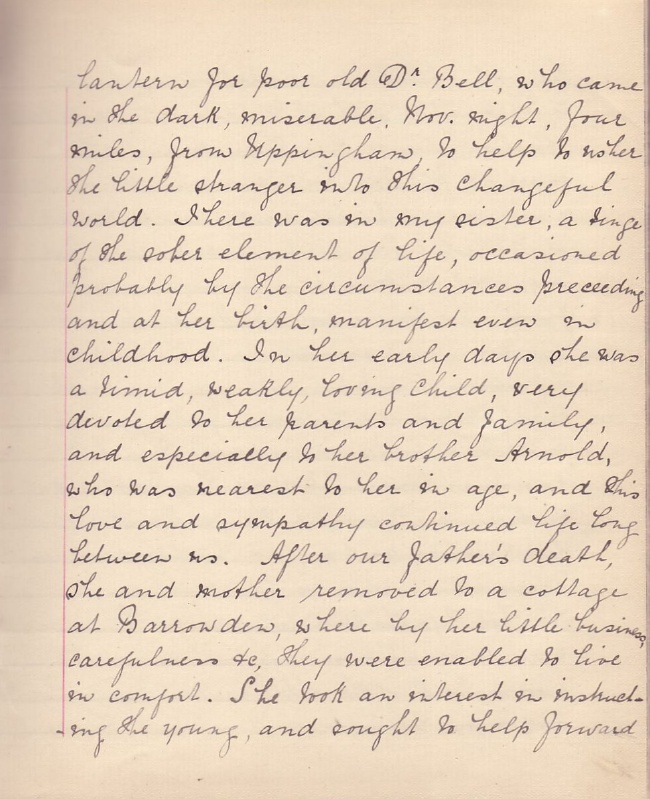 lantern for poor old Dr. Bell, who came
in the dark, miserable, Nov. night, four
miles, from Uppingham, to help to usher
the little stranger into this changeful
world. There was in my sister, a tinge
of the sober element of life, occasioned
probably by the circumstances preceeding
and at her birth, manifest even in
childhood. In her early days she was
a timid, weakly, loving child, very
devoted to her parents and family,
and especially to her brother Arnold,
who was nearest to her in age, and this
love and sympathy continued life long
between us. After our father's death,
she and mother removed to a cottage
at Barrowden, where by her little business,
carefulness &c, they were enabled to live
in comfort. She took an interest in instruct-
-ing the young, and sought to help forward